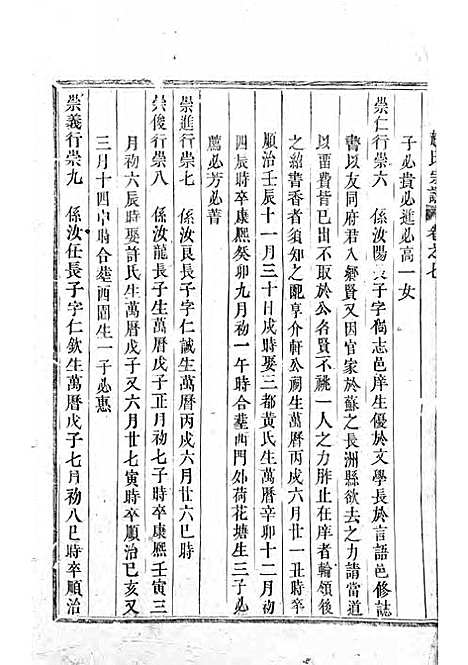 趙氏宗譜 卷之七
子必貴必進必高一女
崇仁行崇六 係汝陽長子字 志邑庠生優於文學長於言語邑修誌
書以友同府君入鄉賢又因官家於蘇之長洲縣欲去之力請當道
以苗費不取於公名賢不祧一人之力胙止在庠者輪領後
之紹書香者須知之配享介軒公祠生萬曆丙戌六月廿一丑時卒
順治壬辰十一月三十日戌時娶三都黃氏生萬曆辛卯十二月初
四辰時卒康熙癸卯九月初一午時合塟西門外荷花塘生三子必
薦必芳必著
崇進行崇七 係汝良長子字仁誠生萬曆丙戌六月廿六巳時
崇俊行崇八 係汝龍長子生萬曆戊子正月初七子時卒康熙壬寅三
月初六辰時娶許氏生萬曆戊子又六月廿七寅時卒順治己亥又
三月十四申時合塟西園生一子必惠
崇義行崇九 係汝任長子字仁欽生萬曆戊子七月初八巳時卒順治